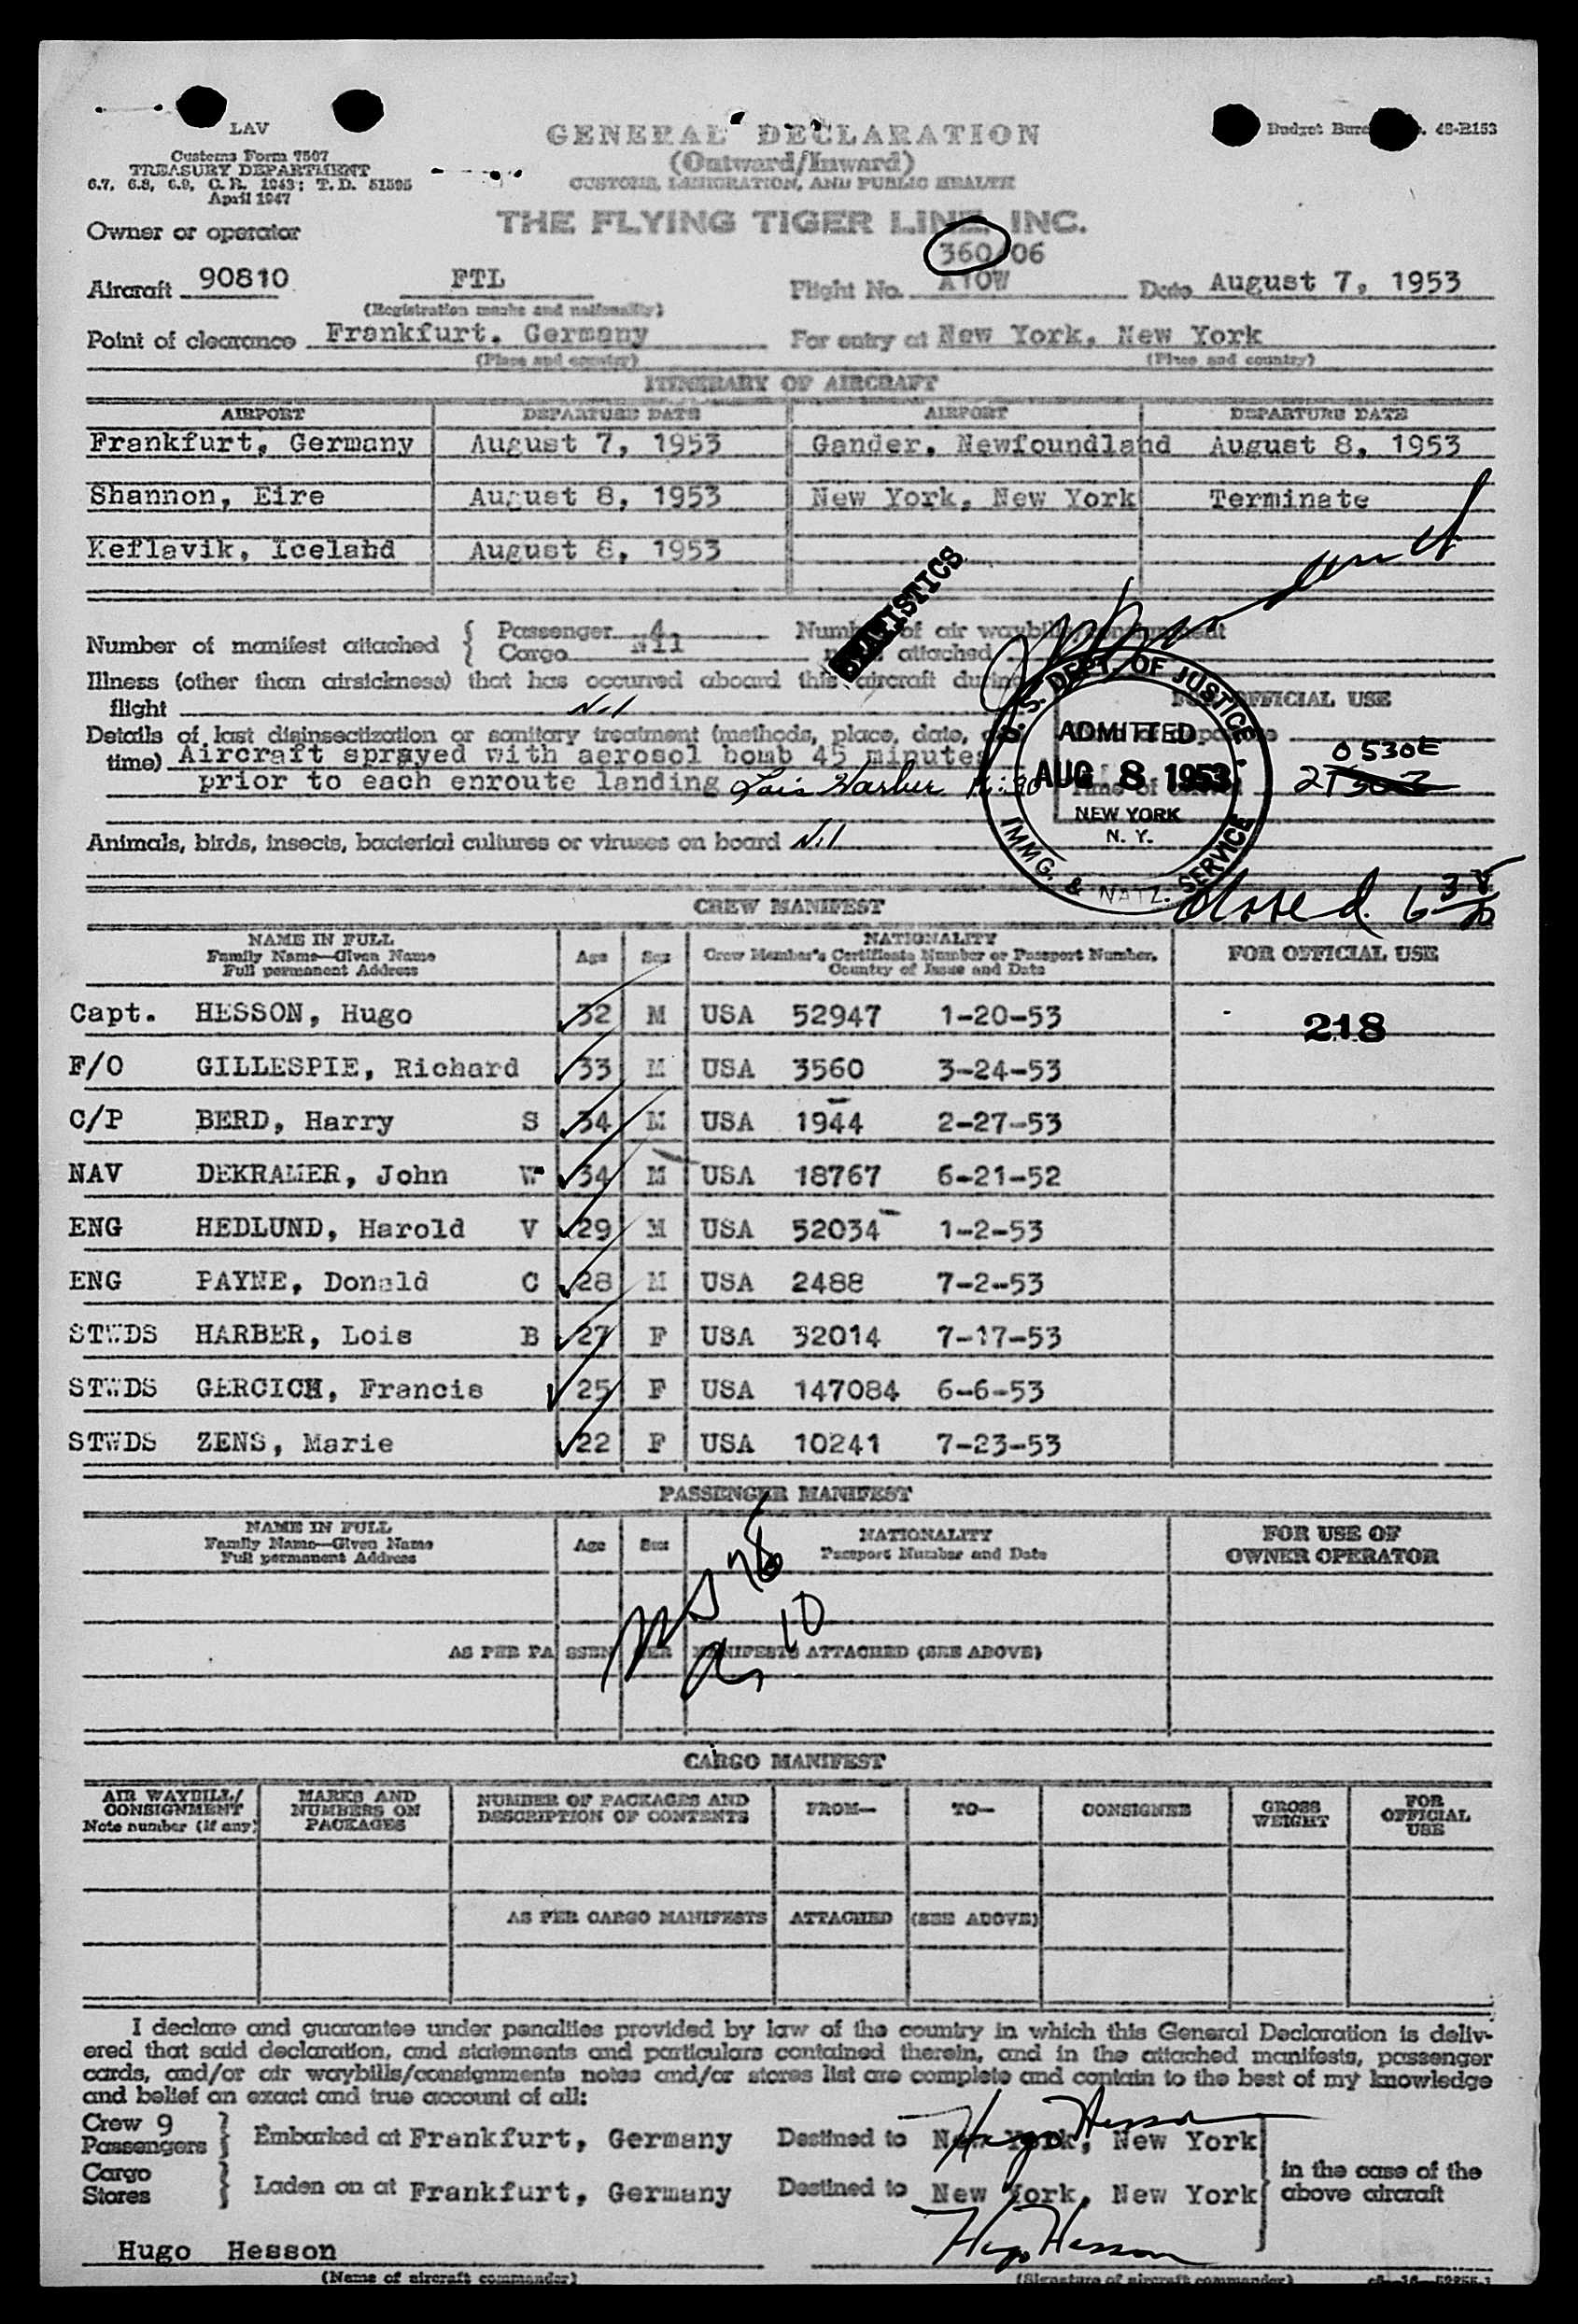 LAV
Customs Form 7507
TREASURY DEPARTMENT
6.7, 6.8, 6.9, C. R. 1943; T. D. 51595
April 1947
GENERAL DECLARATION
(Outward/Inward)
CUSTOMS, IMMIGRATION, AND PUBLIC HEALTH
Budget Bureau 48-R153
Owner or operator THE FLYING TIGER LINE INC.
360/06
Aircraft 90810 FTL Flight No. ATOW Date August 7, 1953
(Registration marks and nationality)
Point of clearance Frankfurt, Germany For entry at New York, New York
(Place and country) (Place and country)
ITINERARY OF AIRCRAFT
AIRPORT DEPARTURE DATE AIRPORT DEPARTURE DATE
Frankfurt, Germany August 7, 1953 Gander, Newfoundland August 8, 1953
Shannon, Eire August 8, 1953 New York, New York Terminate
Keflavik, Iceland August 8, 1953
STATISTICS
Number of manifest attached { Passenger 4 Number of air waybills/consignment
Cargo Nil attached
Illness (other than airsickness) that has occurred aboard this aircraft during
flight Nil FOR OFFICIAL USE
Details of last disinsectization or sanitary treatment (methods, place, date,
time) Aircraft sprayed with aerosol bomb 45 minutes
prior to each enroute landing Lois Harber
0530E
U. S. DEPT. OF JUSTICE
ADMITTED
AUG 8 1953
NEW YORK
N. Y.
IMMG. & NATZ. SERVICE
Animals, birds, insects, bacterial cultures or viruses on board Nil
closed
CREW MANIFEST
NAME IN FULL
Family Name—Given Name
Full permanent Address
Age Sex
NATIONALITY
Crew Member's Certificate Number or Passport Number,
Country of Issue and Date
FOR OFFICIAL USE
Capt. HESSON, Hugo 32 M USA 52947 1-20-53 218
F/O GILLESPIE, Richard 33 M USA 3560 3-24-53
C/P BERD, Harry S 34 M USA 1944 2-27-53
NAV DEKRAMER, John W 34 M USA 18767 6-21-52
ENG HEDLUND, Harold V 29 M USA 52034 1-2-53
ENG PAYNE, Donald C 28 M USA 2488 7-2-53
STWDS HARBER, Lois B 27 F USA 32014 7-17-53
STWDS GERCICH, Francis 25 F USA 147084 6-6-53
STWDS ZENS, Marie 22 F USA 10241 7-23-53
PASSENGER MANIFEST
NAME IN FULL
Family Name—Given Name
Full permanent Address
Age Sex
NATIONALITY
Passport Number and Date
FOR USE OF
OWNER OPERATOR
10
AS PER PASSENGER MANIFESTS ATTACHED (SEE ABOVE)
CARGO MANIFEST
AIR WAYBILL/
CONSIGNMENT
Note number (if any)
MARKS AND
NUMBERS ON
PACKAGES
NUMBER OF PACKAGES AND
DESCRIPTION OF CONTENTS
FROM— TO— CONSIGNEE
GROSS
WEIGHT
FOR
OFFICIAL
USE
AS PER CARGO MANIFESTS ATTACHED (SEE ABOVE)
I declare and guarantee under penalties provided by law of the country in which this General Declaration is deliv-
ered that said declaration, and statements and particulars contained therein, and in the attached manifests, passenger
cards, and/or air waybills/consignments notes and/or stores list are complete and contain to the best of my knowledge
and belief an exact and true account of all:
Crew 9
Passengers } Embarked at Frankfurt, Germany Destined to New York, New York
Hugo Hesson
Cargo
Stores } Laden on at Frankfurt, Germany Destined to New York, New York
in the case of the
above aircraft
Hugo Hesson Hugo Hesson
(Name of aircraft commander) (Signature of aircraft commander)